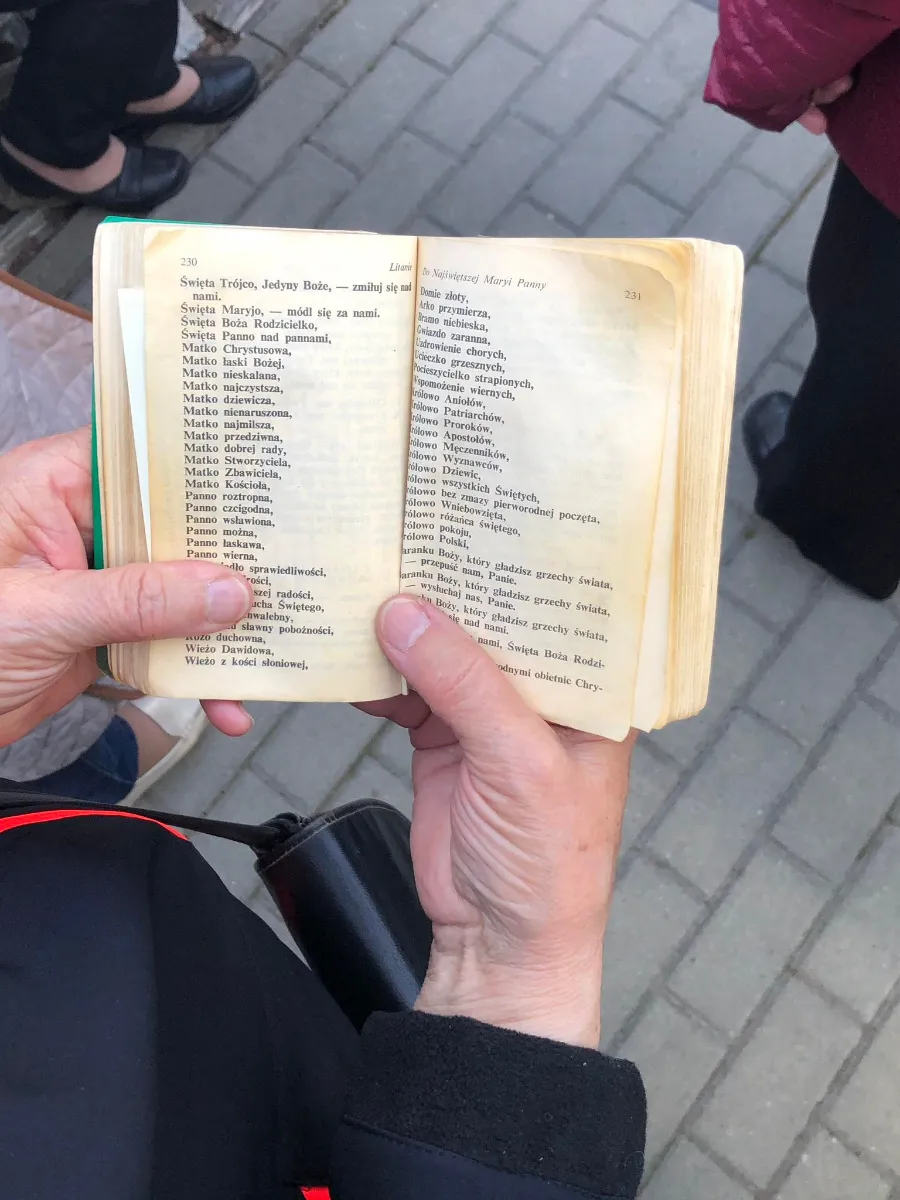 230
Litania
Święta Trójco, Jedyny Boże, — zmiłuj się nad
nami.
Święta Maryjo, — módl się za nami.
Święta Boża Rodzicielko,
Święta Panno nad pannami,
Matko Chrystusowa,
Matko łaski Bożej,
Matko nieskalana,
Matko najczystsza,
Matko dziewicza,
Matko nienaruszona,
Matko najmilsza,
Matko przedziwna,
Matko dobrej rady,
Matko Stworzyciela,
Matko Zbawiciela,
Matko Kościoła,
Panno roztropna,
Panno czcigodna,
Panno wsławiona,
Panno można,
Panno łaskawa,
Panno wierna,
sprawiedliwości,
szej radości,
Świętego,
sławny pobożności,
Różo duchowna,
Wieżo Dawidowa,
Wieżo z kości słoniowej,
Do Najświętszej Maryi Panny
231
Domie złoty,
Arko przymierza,
Bramo niebieska,
Gwiazdo zaranna,
Uzdrowienie chorych,
Ucieczko grzesznych,
Pocieszycielko strapionych,
Wspomożenie wiernych,
Królowo Aniołów,
Królowo Patriarchów,
Królowo Proroków,
Królowo Apostołów,
Królowo Męczenników,
Królowo Wyznawców,
Królowo Dziewic,
Królowo wszystkich Świętych,
Królowo bez zmazy pierworodnej poczęta,
Królowo Wniebowzięta,
Królowo różańca świętego,
Królowo pokoju,
Królowo Polski,
Baranku Boży, który gładzisz grzechy świata,
— przepuść nam, Panie.
Baranku Boży, który gładzisz grzechy świata,
— wysłuchaj nas, Panie.
Boży, który gładzisz grzechy świata,
się nad nami.
nami, Święta Boża Rodzi-
obietnic Chry-